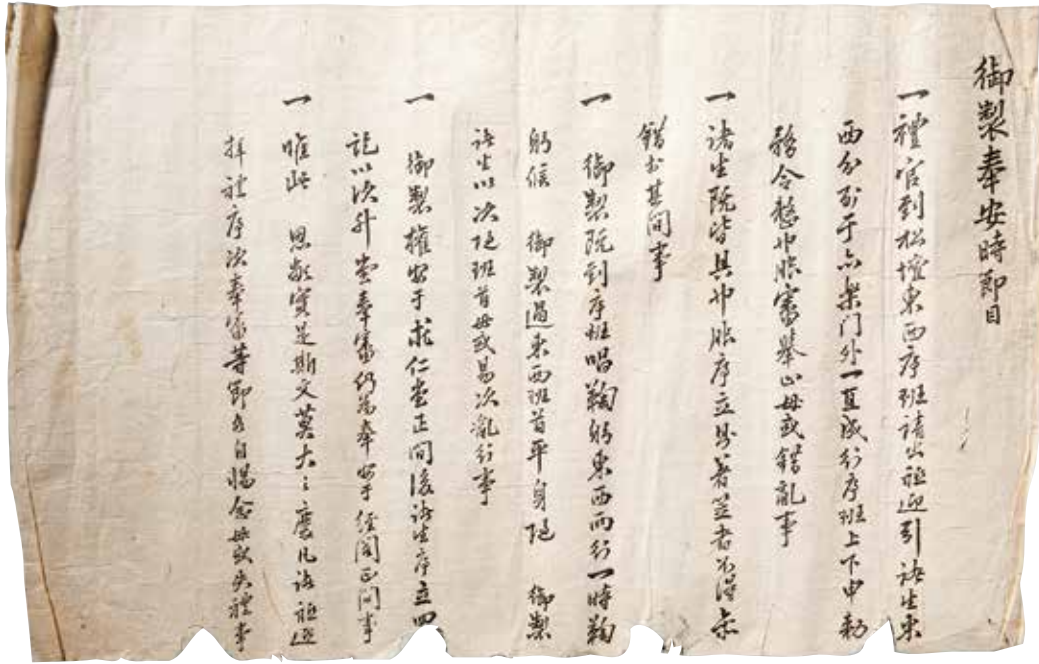 御製奉安時節目
一 禮官到松壇東西序班請出祗迎引諸生東
西分列于六樂门外一直成行序班上下申勅
務令整巾服審擧止毋或錯亂事
一 諸生阮皆具巾服序立着笠者不得
錯於其间事
一 御製阮到序班唱鞠躬東西兩行一時鞠
躬俟 御製過東西班首平身 隨 御製
諸生以次随班首毋或易次亂行事
一 御製權安于求仁堂正间後諸生序立四
訖以次升堂奉審仍爲奉安于經阁正间事
一 唯此 恩數實是斯文莫大之慶凡諸祗迎
拜禮序次奉審等節各自惕念毋或失禮事